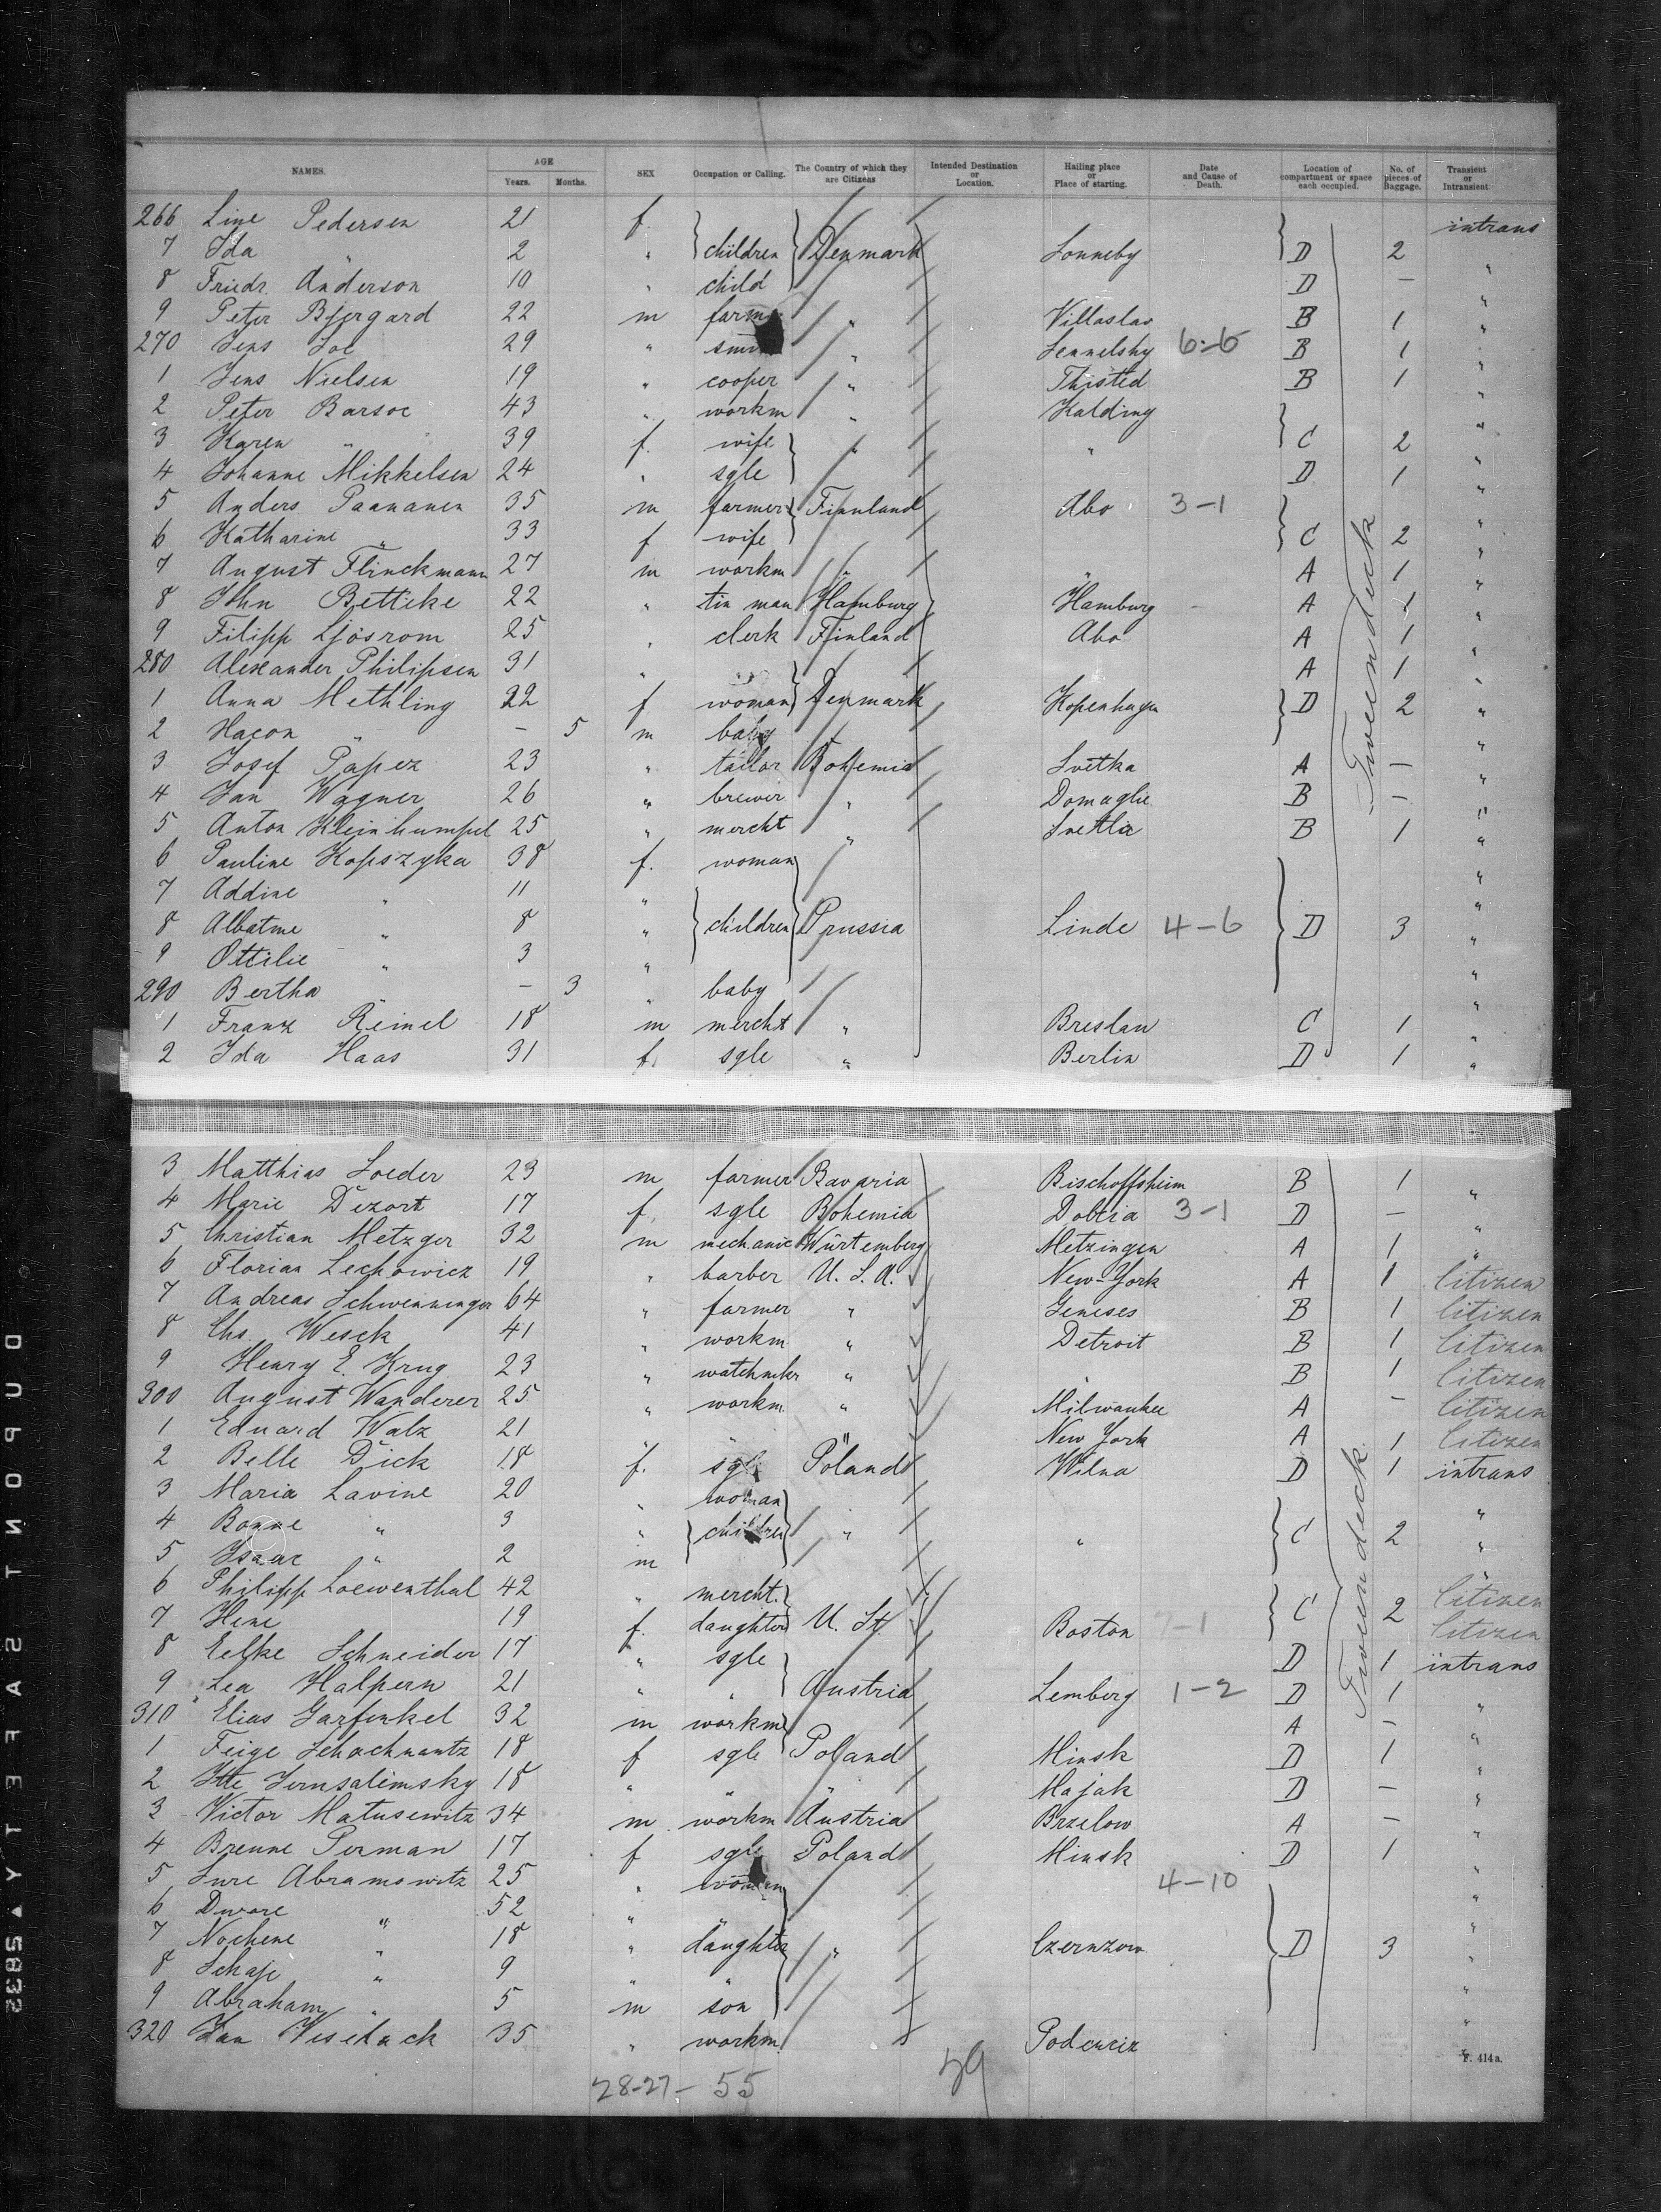 NAMES. AGE Years. Months. SEX Occupation or Calling. The Country of which they are Citizens Intended Destination or Location. Hailing place or Place of starting. Date and Cause of Death. Location of compartment or space each occupied. No. of pieces of Baggage. Transient or Intransient
266 Line Pedersen 21 f intrans
7 Ida " 2 " children Denmark Sonneby D 2 "
8 Friedr. Anderson 10 " child D — "
9 Peter Bjergard 22 m farm " Villaslav B 1 "
270 Jens Joe 29 " " B 1 "
1 Jens Nielsen 19 " cooper " Thisted B 1 "
2 Peter Barsoe 43 " workm " Kolding "
3 Karen " 39 f. wife " " C 2 "
4 Johanne Mikkelsen 24 " sgle D 1 "
5 Anders Paananen 35 m farmer Finnland Abo 3-1 "
6 Katharine " 33 f wife C 2 "
7 August Flinckmann 27 m workm " " A 1 "
8 John Betticke 22 " tin man Hamburg Hamburg A 1 "
9 Filipp Ljösrom 25 " clerk Finland Abo A 1 "
280 Alexander Philipsen 31 " A 1 "
1 Anna Methling 22 f woman Denmark Kopenhagen D 2 "
2 Hacon " — 5 m baby "
3 Josef Papez 23 " tailor Bohemia Svetka A — "
4 Jan Wagner 26 " brewer " Domaglie B — "
5 Anton Kleinhumpel 25 " mercht " B 1 "
6 Pauline Kopszyka 38 f. woman "
7 Addine " 11 " "
8 Albatine " 8 " children Prussia Linde 4-6 D 3 "
9 Ottilie " 3 " "
290 Bertha — 3 " baby "
1 Franz Reimel 18 m mercht " Breslau C 1 "
2 Ida Haas 31 f. sgle " Berlin D 1 "
3 Matthias Loeder 23 m farmer Bavaria Bischoffsheim B 1 "
4 Marie Dezort 17 f. sgle Bohemia 3-1 D — "
5 Christian Metzger 32 m mechanic Würtemberg Metzingen A 1 "
6 Florian Lechowicz 19 " barber U. S. A. New-York A 1 Citizen
7 Andreas Schwenninger 64 " farmer " Geneses B 1 Citizen
8 Chs. Wesck 41 " workm " Detroit B 1 Citizen
9 Henry E. Krug 23 " watchmkr " " B 1 Citizen
300 August Wanderer 25 " workm. " Milwaukee A — Citizen
1 Eduard Walz 21 " " " New York A 1 Citizen
2 Belle Dick 18 f. sgle Poland Wilna D 1 intrans
3 Maria Lavine 20 " woman "
4 Bonne " 3 " children " " C 2 "
5 Isaac " 2 m "
6 Philipp Loewenthal 42 " mercht. Citizen
7 Hene 19 f. daughter U. St. Boston C 2 Citizen
8 Eelke Schneider 17 " sgle D 1 intrans
9 Lea Halpern 21 " " Austria Lemberg 1-2 D 1 "
310 Elias Garfinkel 32 m workm A — "
1 Feige Schachnantz 18 f sgle Poland Minsk D 1 "
2 Itte Jerusalimsky 18 " " " Majak D — "
3 Victor Matusewitz 34 m workm Austria Brzelow A — "
4 Brenne Perman 17 f sgle Poland Minsk D 1 "
5 Sure Abramowitz 25 " woman 4-10 "
6 Dwore " 52 " " "
7 Nochene " 18 " daughter " Czernzow D 3 "
8 Schaje " 9 " " "
9 Abraham " 5 m son "
320 Jan 35 " workm. "
Tweendeck
Tweendeck
F. 414a.
28-27- 55 59
DUPONT SAFETY ▲ 5832